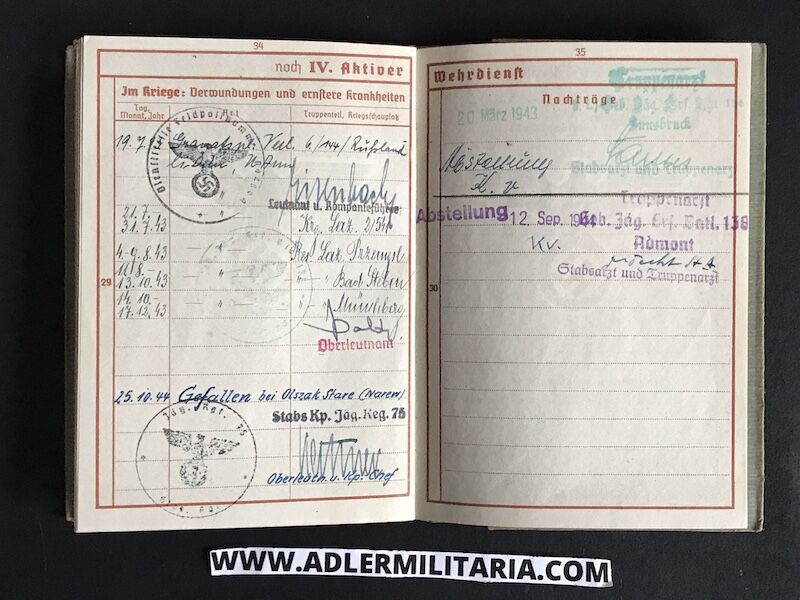 34
noch IV. Aktiver
Im Kriege: Verwundungen und ernstere Krankheiten
Tag, Monat, Jahr
Art
Truppenteil, Kriegsschauplatz
19.7
Granatspl. Verl. 6/144/Rußland
Leutnant u. Kompanieführer
21.7.
31.7.43
Krg. Laz.
4.-9.8.43
Res. Laz. Przemysl
11.8.-
13.10.43
Bad Steben
14.10.-
17.12.43
Münchberg
Oberleutnant
29
25.10.44 Gefallen bei Olszak Stare (Narew)
Stabs Kp. Jäg. Reg. 75
Oberleutn. u. Kp. Chef
35
Wehrdienst
Nachträge
Truppenarzt
Innsbruck
20. März 1943
Stabsarzt und Truppenarzt
K.v.
Abstellung
12. Sep. 1944
Truppenarzt
Geb. Jäg. Ers. Batl. 138
Admont
Kv.
Stabsarzt und Truppenarzt
30
WWW.ADLERMILITARIA.COM